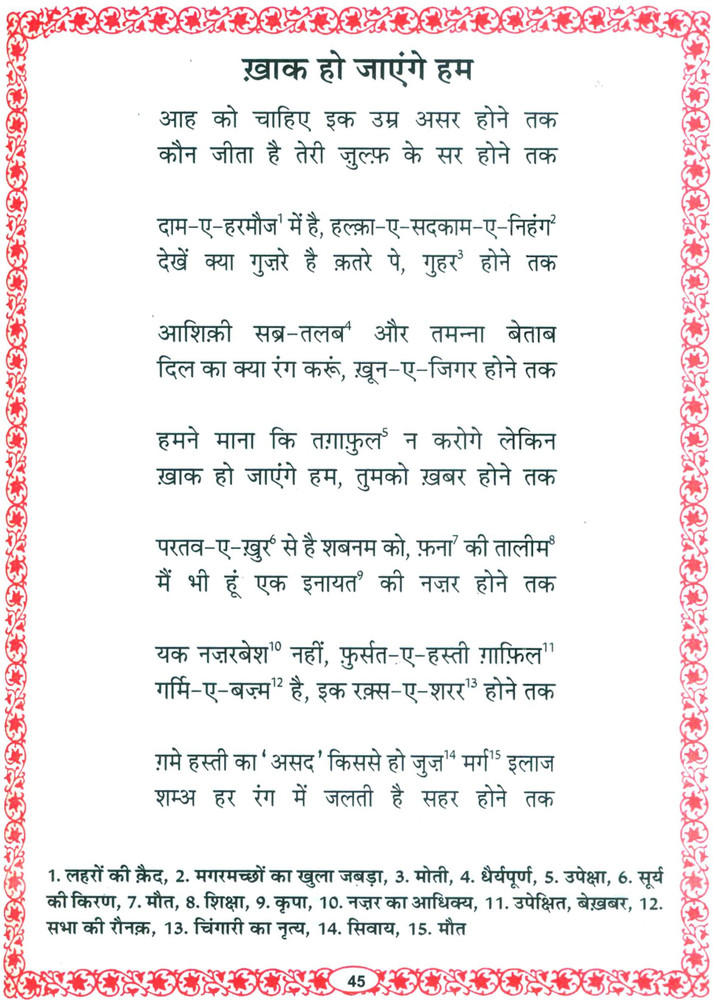 ख़ाक हो जाएंगे हम
आह को चाहिए इक उम्र असर होने तक
कौन जीता है तेरी ज़ुल्फ़ के सर होने तक
दाम-ए-हरमौज¹ में है, हल्क़ा-ए-सदकाम-ए-निहंग²
देखें क्या गुज़रे है क़तरे पे, गुहर³ होने तक
आशिक़ी सब्र-तलब⁴ और तमन्ना बेताब
दिल का क्या रंग करूं, ख़ून-ए-जिगर होने तक
हमने माना कि तग़ाफ़ुल⁵ न करोगे लेकिन
ख़ाक हो जाएंगे हम, तुमको ख़बर होने तक
परतव-ए-ख़ुर⁶ से है शबनम को, फ़ना⁷ की तालीम⁸
मैं भी हूं एक इनायत⁹ की नज़र होने तक
यक नज़रबेश¹⁰ नहीं, फ़ुर्सत-ए-हस्ती ग़ाफ़िल¹¹
गर्मि-ए-बज़्म¹² है, इक रक़्स-ए-शरर¹³ होने तक
ग़मे हस्ती का ‘असद’ किससे हो जुज़¹⁴ मर्ग¹⁵ इलाज
शम्अ हर रंग में जलती है सहर होने तक
1. लहरों की क़ैद, 2. मगरमच्छों का खुला जबड़ा, 3. मोती, 4. धैर्यपूर्ण, 5. उपेक्षा, 6. सूर्य
की किरण, 7. मौत, 8. शिक्षा, 9. कृपा, 10. नज़र का आधिक्य, 11. उपेक्षित, बेख़बर, 12.
सभा की रौनक़, 13. चिंगारी का नृत्य, 14. सिवाय, 15. मौत
45